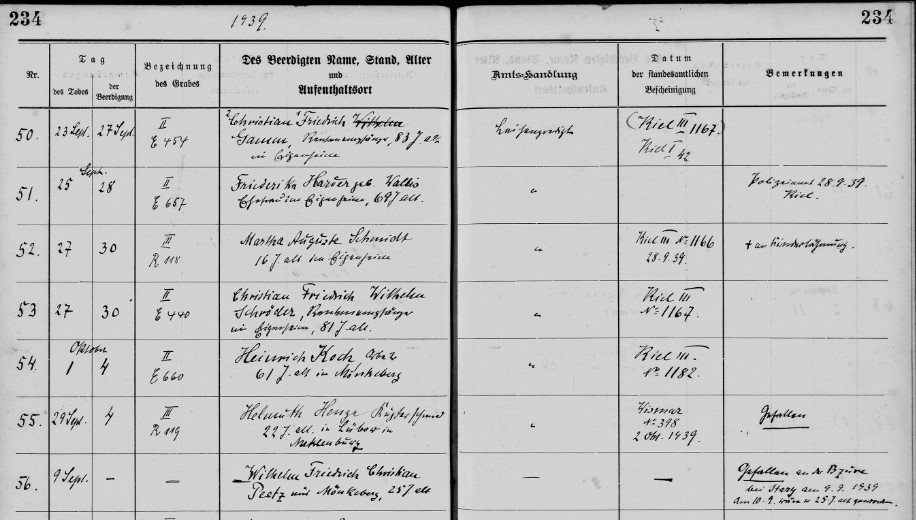 234
1939.
234
Nr.
Tag
des Todes
der Beerdigung
Bezeichnung
des Grabes
Des Beerdigten Name, Stand, Alter
und
Aufenthaltsort
Amts-Handlung
Datum
der standesamtlichen
Bescheinigung
Bemerkungen
50. 23 Sept. 27 Sept. II Christian Friedrich Wilhelm Leichenpredigt (Kiel III 1167.)
E 454 Gamm, Rentenempfänger, 83 J. alt Kiel I 42
in Eigenheim
Sept.
51. 25 28 II Friederike Harder geb. Wallis " Polizeiamt 28.9.39.
E 657 Ehefrau in Eigenheim, 69 J alt. Kiel.
52. 27 30 III Martha Auguste Schmidt " Kiel III No 1166
R 118 16 J alt in Eigenheim 28.9.39. † an Kinderlähmung.
53 27 30 II Christian Friedrich Wilhelm " Kiel III
E 440 Schröder, Rentenempfänger No 1167.
in Eigenheim, 81 J. alt.
Oktober
54. 1 4 II Heinrich Koch " Kiel III.
E 660 61 J. alt in Mönkeberg No 1182.
55. 29 Sept. 4 III Helmuth " Wismar Gefallen
R 119 22 J. alt. in Lübow in No 398
Mecklenburg 2 Okt. 1939.
56. 9 Sept. — — Wilhelm Friedrich Christian — — Gefallen an der Bzura
Peetz aus Mönkeberg, 25 J alt bei 9.9.1939
Am 10.9. wäre er 25 J alt geworden.